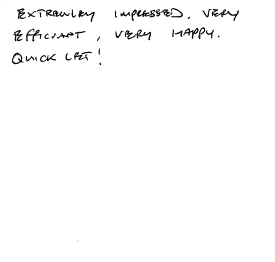 EXTREMLEY IMPRESSED. VERY
EFFICIANT, VERY HAPPY.
QUICK LET!